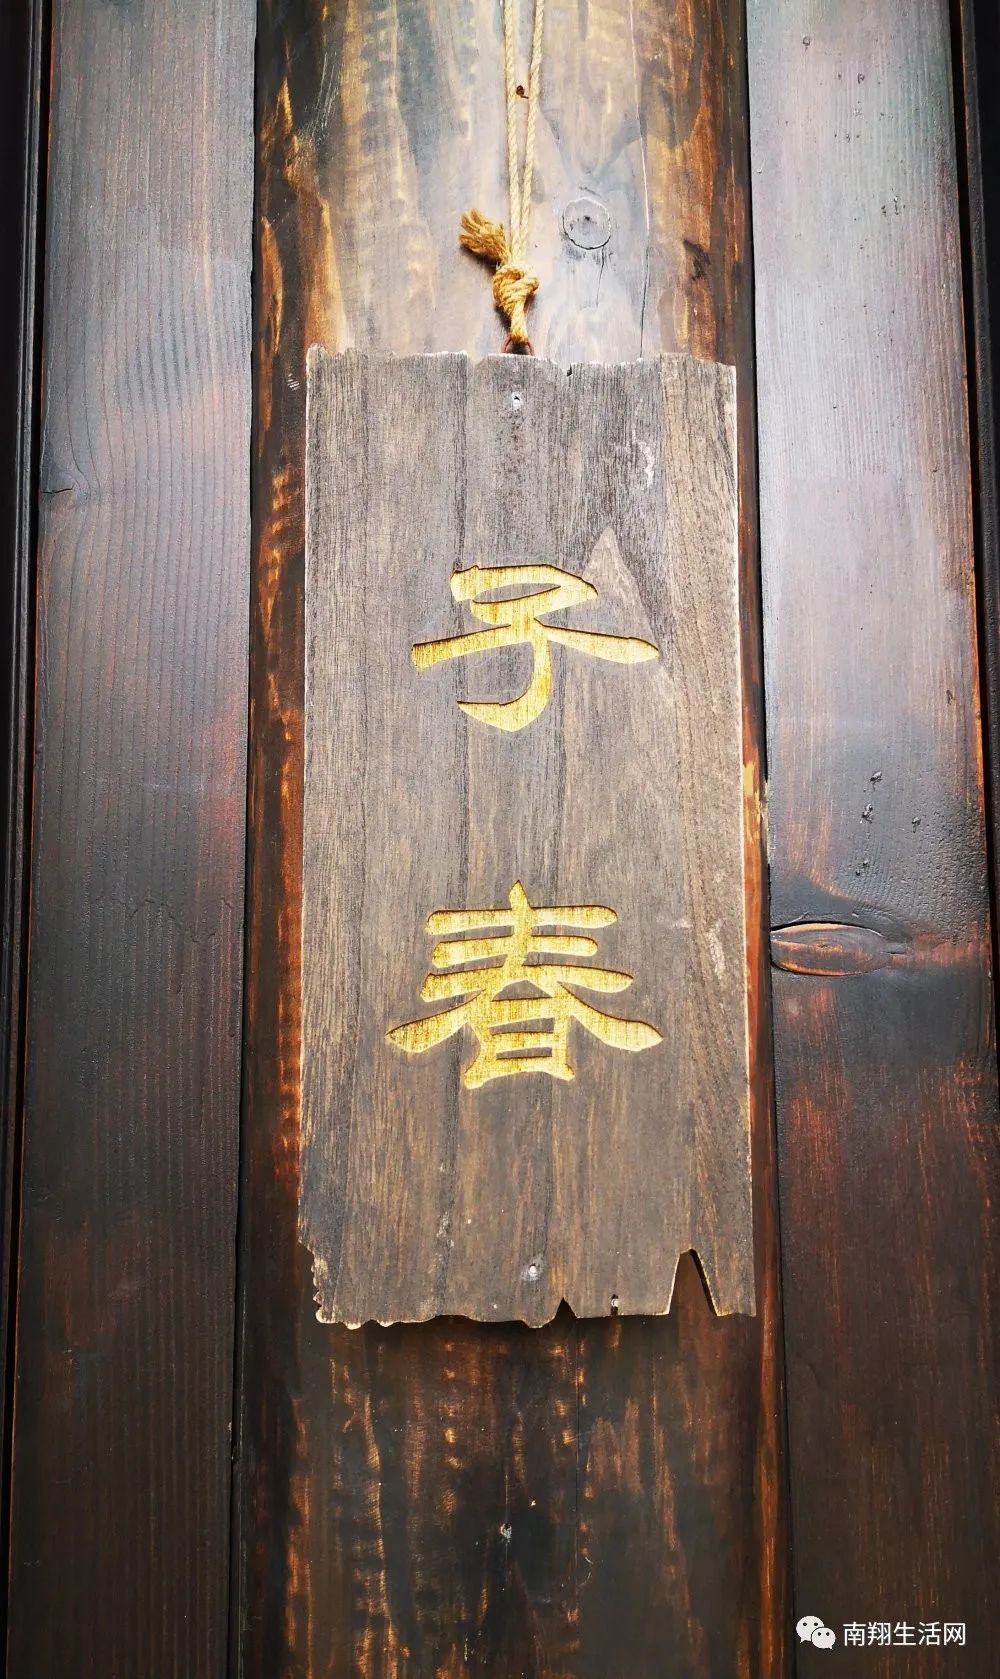 子
春
南翔生活网